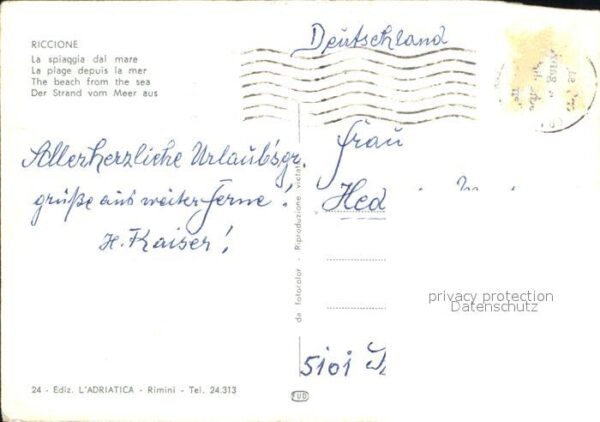 RICCIONE
La spiaggia dal mare
La plage depuis la mer
The beach from the sea
Der Strand vom Meer aus
Deutschland
Allerherzliche Urlaubsgr.
grüße aus weiter Ferne!
H. Kaiser!
Frau
Hed
5101
da fotocolor - Riproduzione vietata
privacy protection
Datenschutz
24 - Ediz. L'ADRIATICA - Rimini - Tel. 24.313